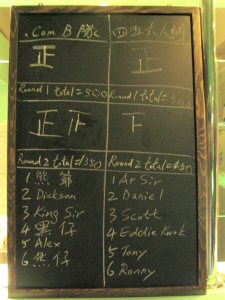 .Com B 隊
四五六人組
正
正
Round 1 total=500
Round 1 total=500
正下
下
Round 2 total=1350
Round 2 total=450
1 熊爺
2 Dickson
3 King Sir
4 黑仔
5 Alex
6 熊仔
1 Ar Sir
2 Daniel
3 Scott
4 Eddie Kwok
5 Tony
6 Ronny